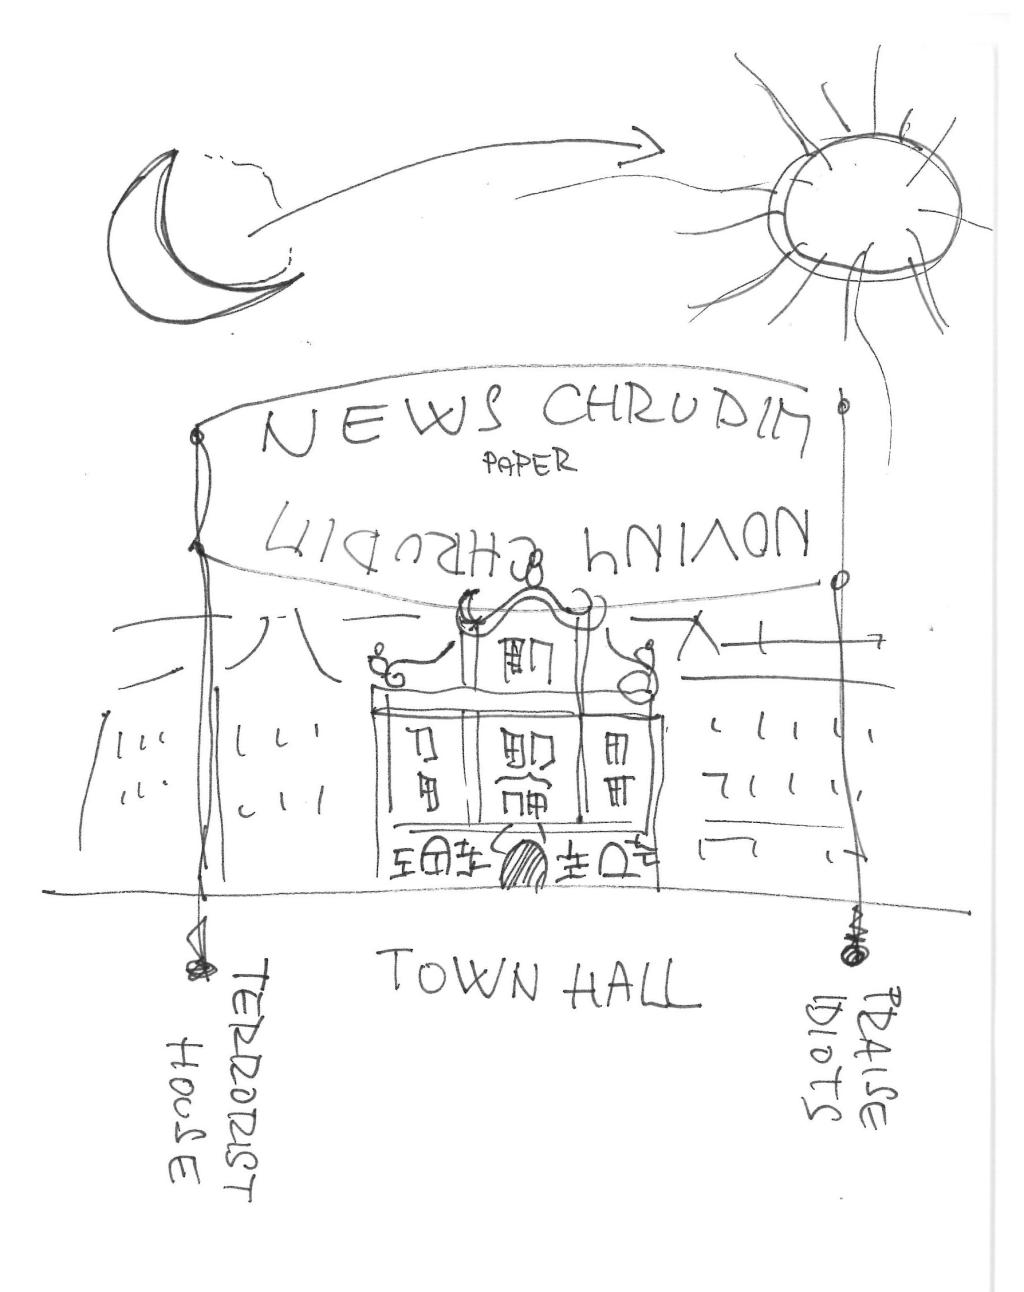 NEWS CHRUDIM
PAPER
NOVINY CHRUDIM
TOWN HALL
TERRORIST
HOUSE
PRAISE
IDIOTS